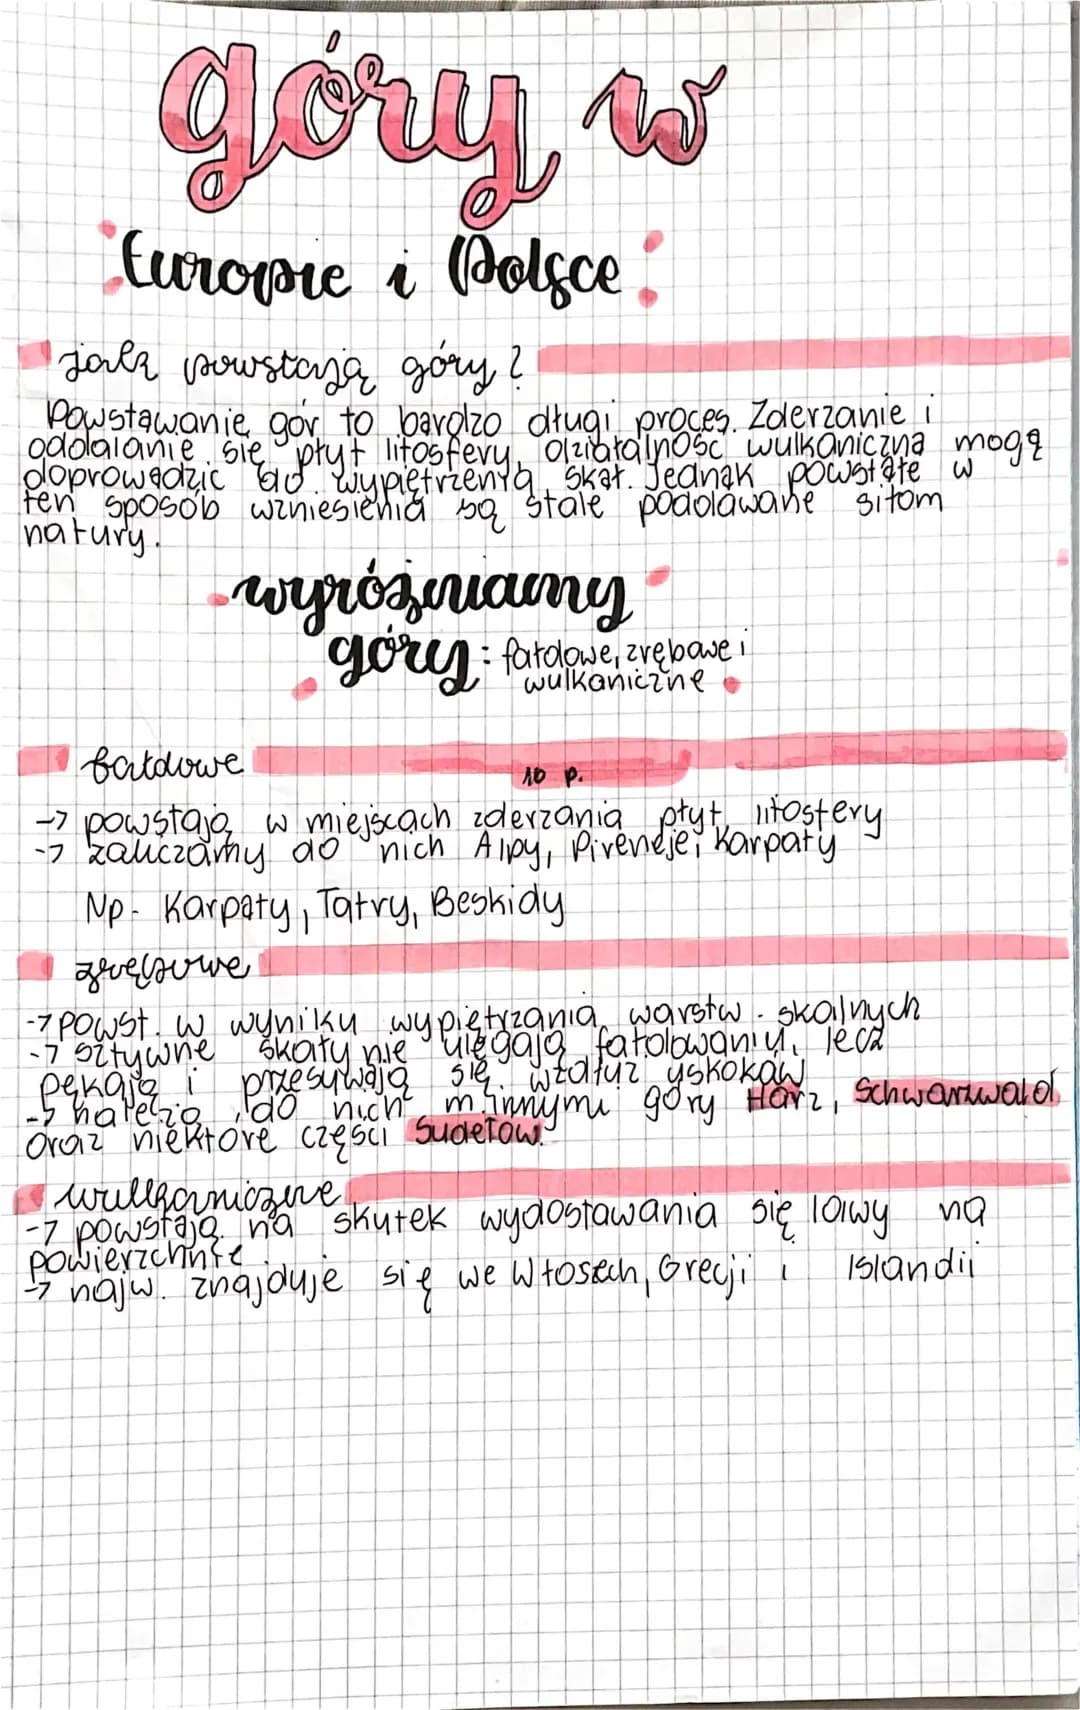 góry w
Europie i Polsce
jak powstają góry?
Powstawanie gór to bardzo długi proces. Zderzanie i
oddalanie się płyt litosfery, działalność wulkaniczna mogą
doprowadzić do wypiętrzenia skał. Jednak powstałe w
ten sposób wzniesienia są stale poddawane siłom
natury.
wyróżniamy
góry: fałdowe, zrębowe i
wulkaniczne
fałdowe
10 p.
-> powstają w miejscach zderzania płyt litosfery
-> zaliczamy do nich Alpy, Pireneje, Karpaty
Np. Karpaty, Tatry, Beskidy
zrębowe
-> powst. w wyniku wypiętrzania warstw skalnych
-> sztywne skały nie ulegają fałdowaniu, lecz
pękają i przesuwają się wzdłuż uskoków
-> należą do nich m.innymi góry Harz, Schwarzwald
oraz niektóre części Sudetów.
wulkaniczne
-> powstają na skutek wydostawania się lawy na
powierzchnię
-> najw. znajduje się we Włoszech, Grecji i Islandii